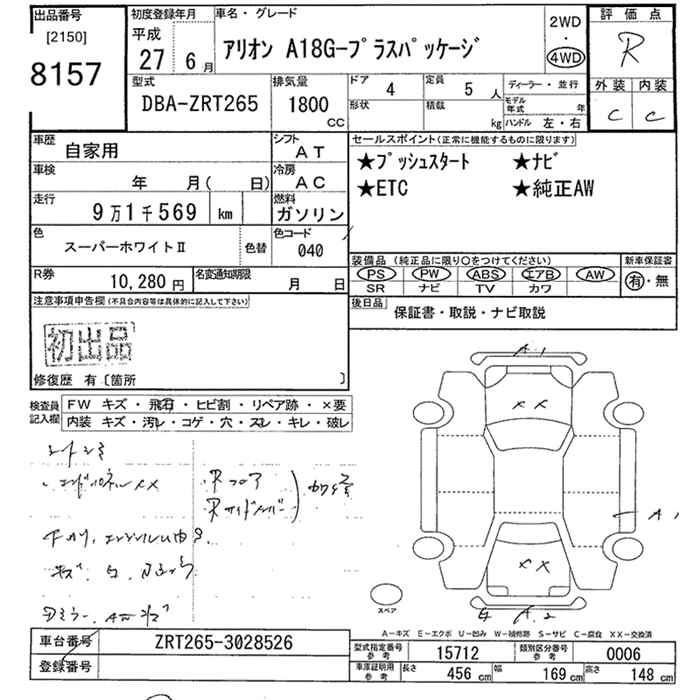 出品番号
[2150]
8157
初度登録年月
平成
27 6月
車名・グレード
アリオン A18G-プラスパッケージ
2WD
・
4WD
評価点
R
外装 内装
C C
型式
DBA-ZRT265
排気量
1800
CC
ドア 4
定員 5 人
形状
積載 kg
ディーラー・並行
モデル年式 年
ハンドル 左・右
車歴 自家用
シフト AT
車検 年 月( 日)
冷房 AC
走行 9万1千569 km
燃料 ガソリン
色 スーパーホワイトⅡ 色替
色コード 040
R券 10,280円
名変通知期限 月 日
セールスポイント(正常に機能するものに限ります)
★プッシュスタート ★ナビ
★ETC ★純正AW
装備品 (純正品に限り○をつけてください)
PS PW ABS エアB AW
SR ナビ TV カワ
新車保証書
有・無
後日品
保証書・取説・ナビ取説
注意事項申告欄(不具合内容等は具体的に記入して下さい)
初出品
修復歴 有〔箇所 〕
検査員記入欄
FW キズ・飛石・ヒビ割・リペア跡・×要
内装 キズ・汚レ・コゲ・穴・スレ・キレ・破レ
A1
XX
A1
XX
A2
スペア
A−キズ E−エクボ U−凹み W−補修跡 S−サビ C−腐食 XX−交換済
車台番号 ZRT265-3028526
登録番号
型式指定番号 参考 15712
類別区分番号 参考 0006
車庫証明用 参考
長さ 456 cm
幅 169 cm
高さ 148 cm